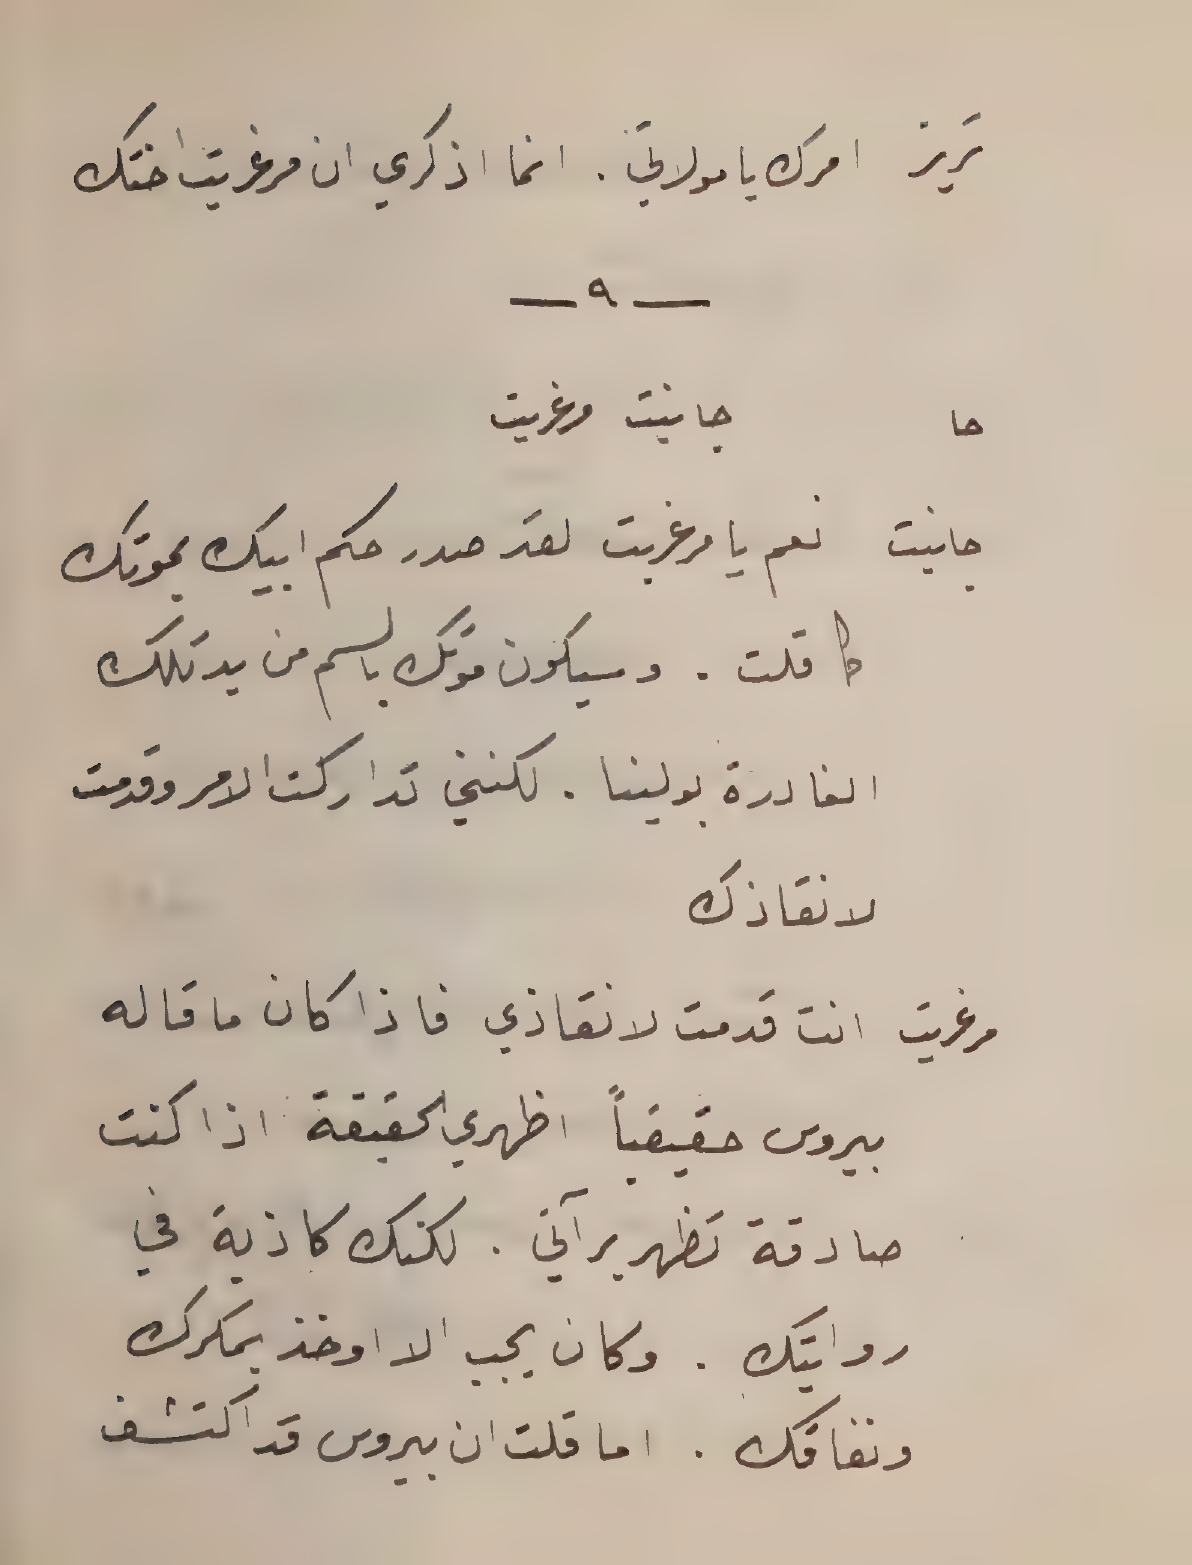 تريز امرك يا مولاتي . انما اذكري ان مرغريت اختك
— ٩ —
جا جانيت مرغريت
جانيت نعم يا مرغريت لقد صدر حكم ابيك بموتك
كما قلت . وسيكون موتك بالسم من يد تلك
الغادرة بولينا . لكنني تداركت الامر وقدمت
لانقاذك
مرغريت انت قدمت لانقاذي فاذا كان ما قاله
بيروس حقيقياً اظهري الحقيقة اذا كنت
صادقة تظهر برآتي . لكنك كاذبة في
روايتك . وكان يجب الا اوخذ بمكرك
ونفاقك . اما قلت ان بيروس قد اكتشف